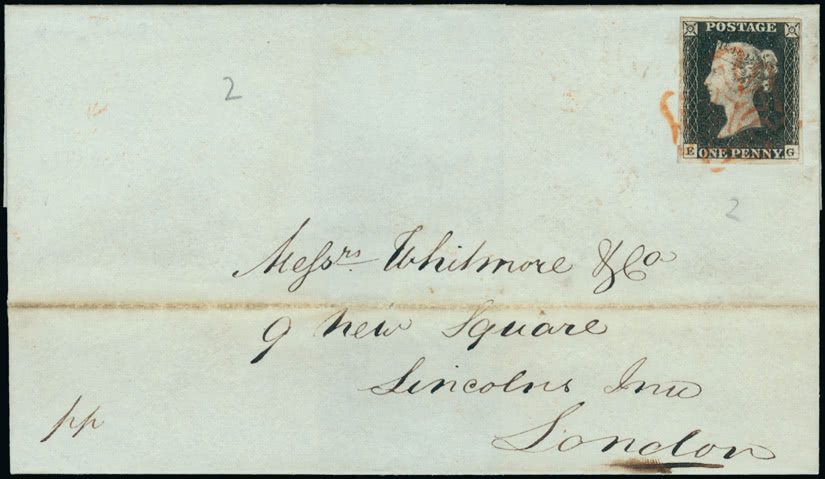 POSTAGE
2
E ONE PENNY G
2
Messrs. Whitmore & Co.
9 New Square
Lincolns Inn
pp
London